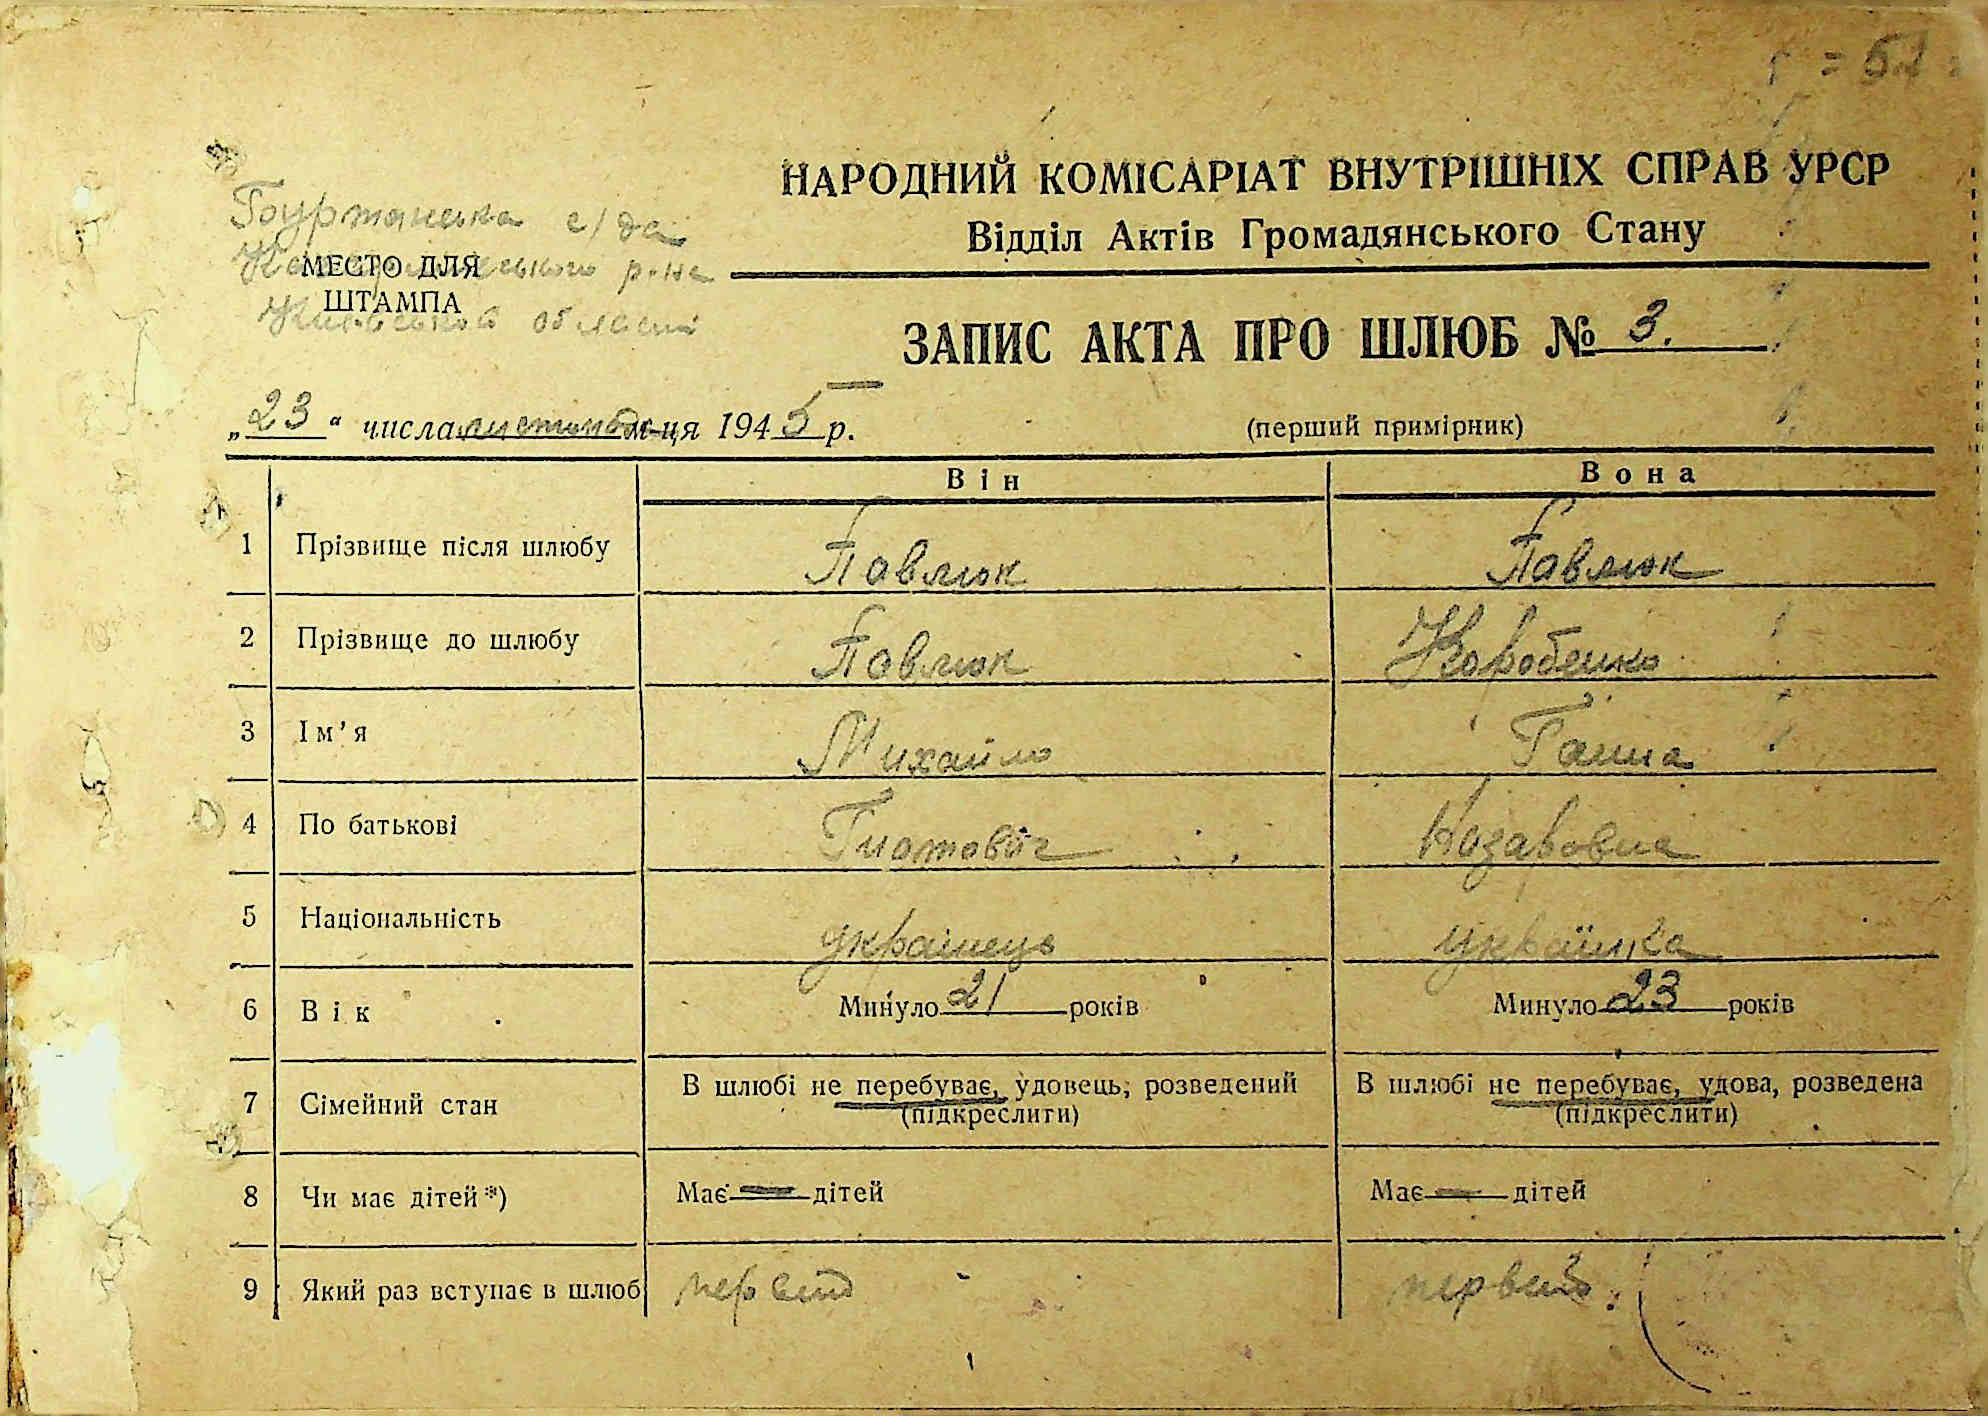 = 51
НАРОДНИЙ КОМІСАРІАТ ВНУТРІШНІХ СПРАВ УРСР
Відділ Актів Громадянського Стану
с/да
МЕСТО ДЛЯ
р-на
ШТАМПА
Київської області
ЗАПИС АКТА ПРО ШЛЮБ № 3.
„23“ числа листопада м-ця 1945 р.
(перший примірник)
Він Вона
1 Прізвище після шлюбу Павлюк Павлюк
2 Прізвище до шлюбу Павлюк Коробенко
3 Ім’я Михайло Ганна
4 По батькові Гнатович Назаровна
5 Національність українець українка
6 Вік Минуло 21 років Минуло 23 років
7 Сімейний стан В шлюбі не перебуває, удовець, розведений В шлюбі не перебуває, удова, розведена
(підкреслити) (підкреслити)
8 Чи має дітей*) Має — дітей Має — дітей
9 Який раз вступає в шлюб первий первий